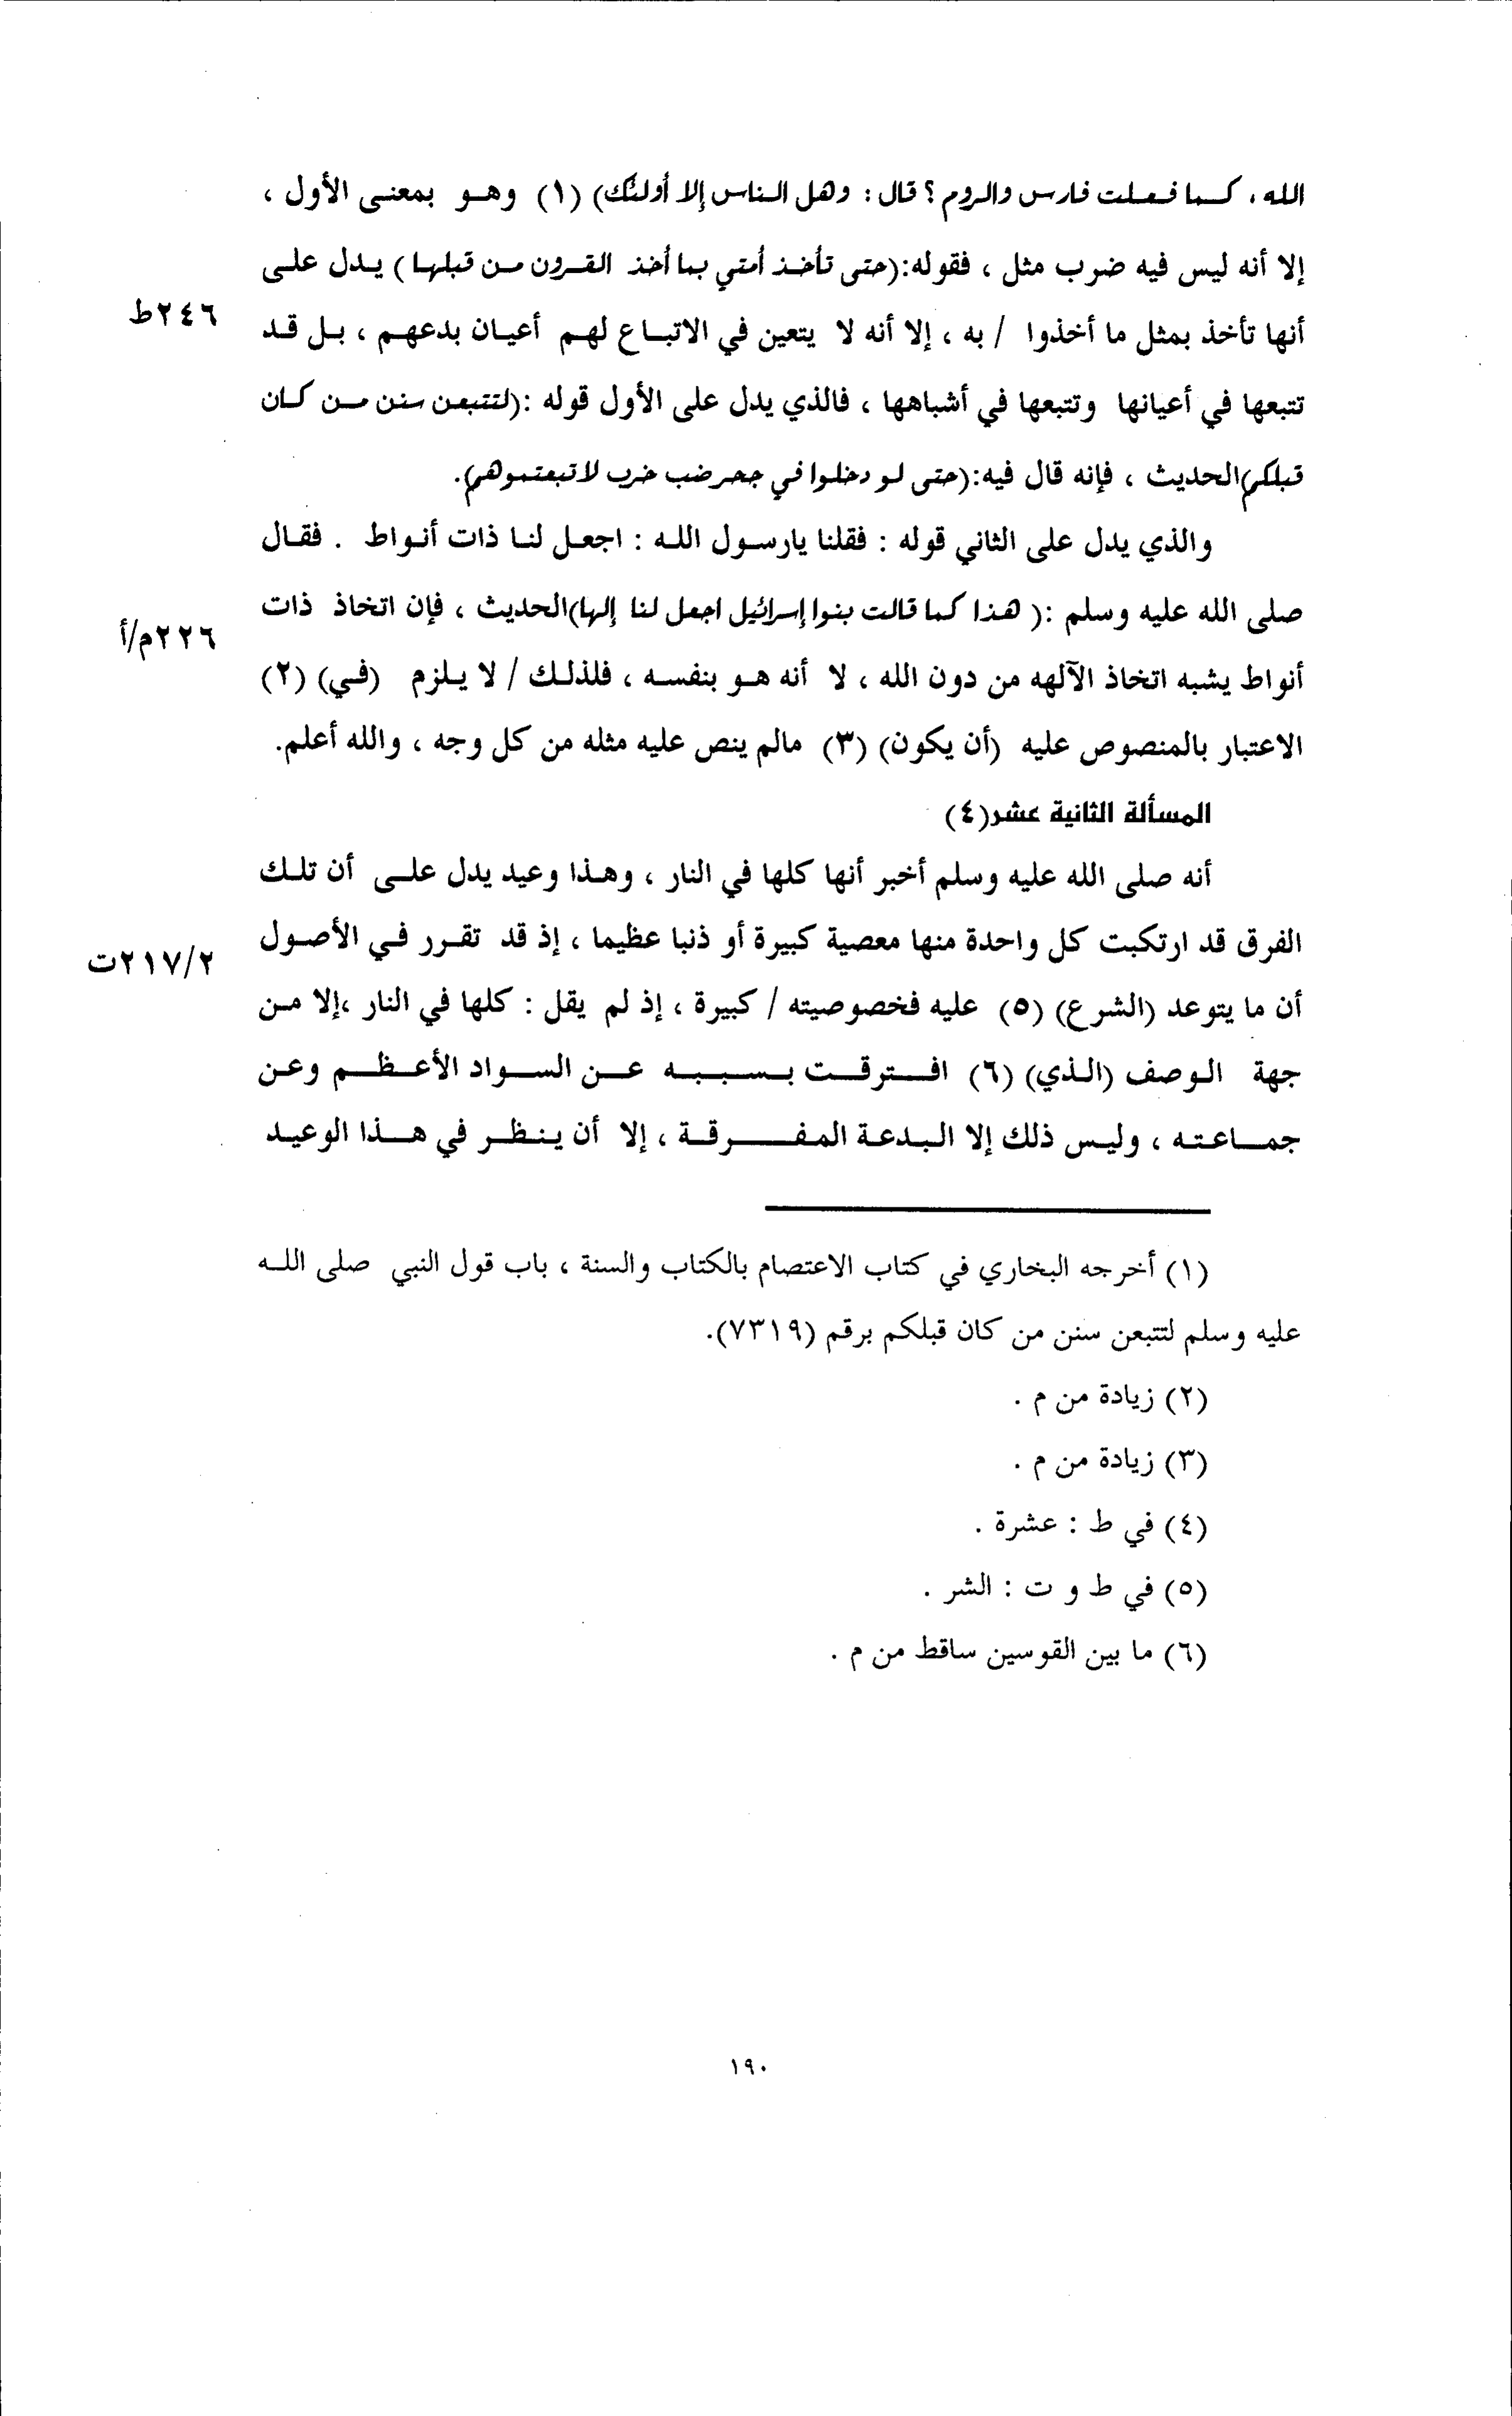 الله ، كما فعلت فارس والروم ؟ قال : وهل الناس إلا أولئك) (١) وهو بمعنى الأول ،
إلا أنه ليس فيه ضرب مثل ، فقوله:(حتى تأخذ أمتي بما أخذ القرون من قبلها) يدل على
أنها تأخذ بمثل ما أخذوا / به ، إلا أنه لا يتعين في الاتباع لهم أعيان بدعهم ، بل قد
٢٤٦ط
تتبعها في أعيانها وتتبعها في أشباهها ، فالذي يدل على الأول قوله :(لتتبعن سنن من كان
قبلكم)الحديث ، فإنه قال فيه:(حتى لو دخلوا في جحر ضب خرب لاتبعتموهم).
والذي يدل على الثاني قوله : فقلنا يارسول الله : اجعل لنا ذات أنواط . فقال
صلى الله عليه وسلم :( هذا كما قالت بنوا إسرائيل اجعل لنا إلها)الحديث ، فإن اتخاذ ذات
٢٢٦م/أ
أنواط يشبه اتخاذ الآلهه من دون الله ، لا أنه هو بنفسه ، فلذلك / لا يلزم (في) (٢)
الاعتبار بالمنصوص عليه (أن يكون) (٣) مالم ينص عليه مثله من كل وجه ، والله أعلم.
المسألة الثانية عشر(٤)
أنه صلى الله عليه وسلم أخبر أنها كلها في النار ، وهذا وعيد يدل على أن تلك
الفرق قد ارتكبت كل واحدة منها معصية كبيرة أو ذنبا عظيما ، إذ قد تقرر في الأصول
٢١٧/٢ت
أن ما يتوعد (الشرع) (٥) عليه فخصوصيته / كبيرة ، إذ لم يقل : كلها في النار ،إلا من
جهة الوصف (الذي) (٦) افترقت بسببه عن السواد الأعظم وعن
جماعته ، وليس ذلك إلا البدعة المفرقة ، إلا أن ينظر في هذا الوعيد
(١) أخرجه البخاري في كتاب الاعتصام بالكتاب والسنة ، باب قول النبي صلى الله
عليه وسلم لتتبعن سنن من كان قبلكم برقم (٧٣١٩).
(٢) زيادة من م .
(٣) زيادة من م .
(٤) في ط : عشرة .
(٥) في ط و ت : الشر .
(٦) ما بين القوسين ساقط من م .
١٩٠